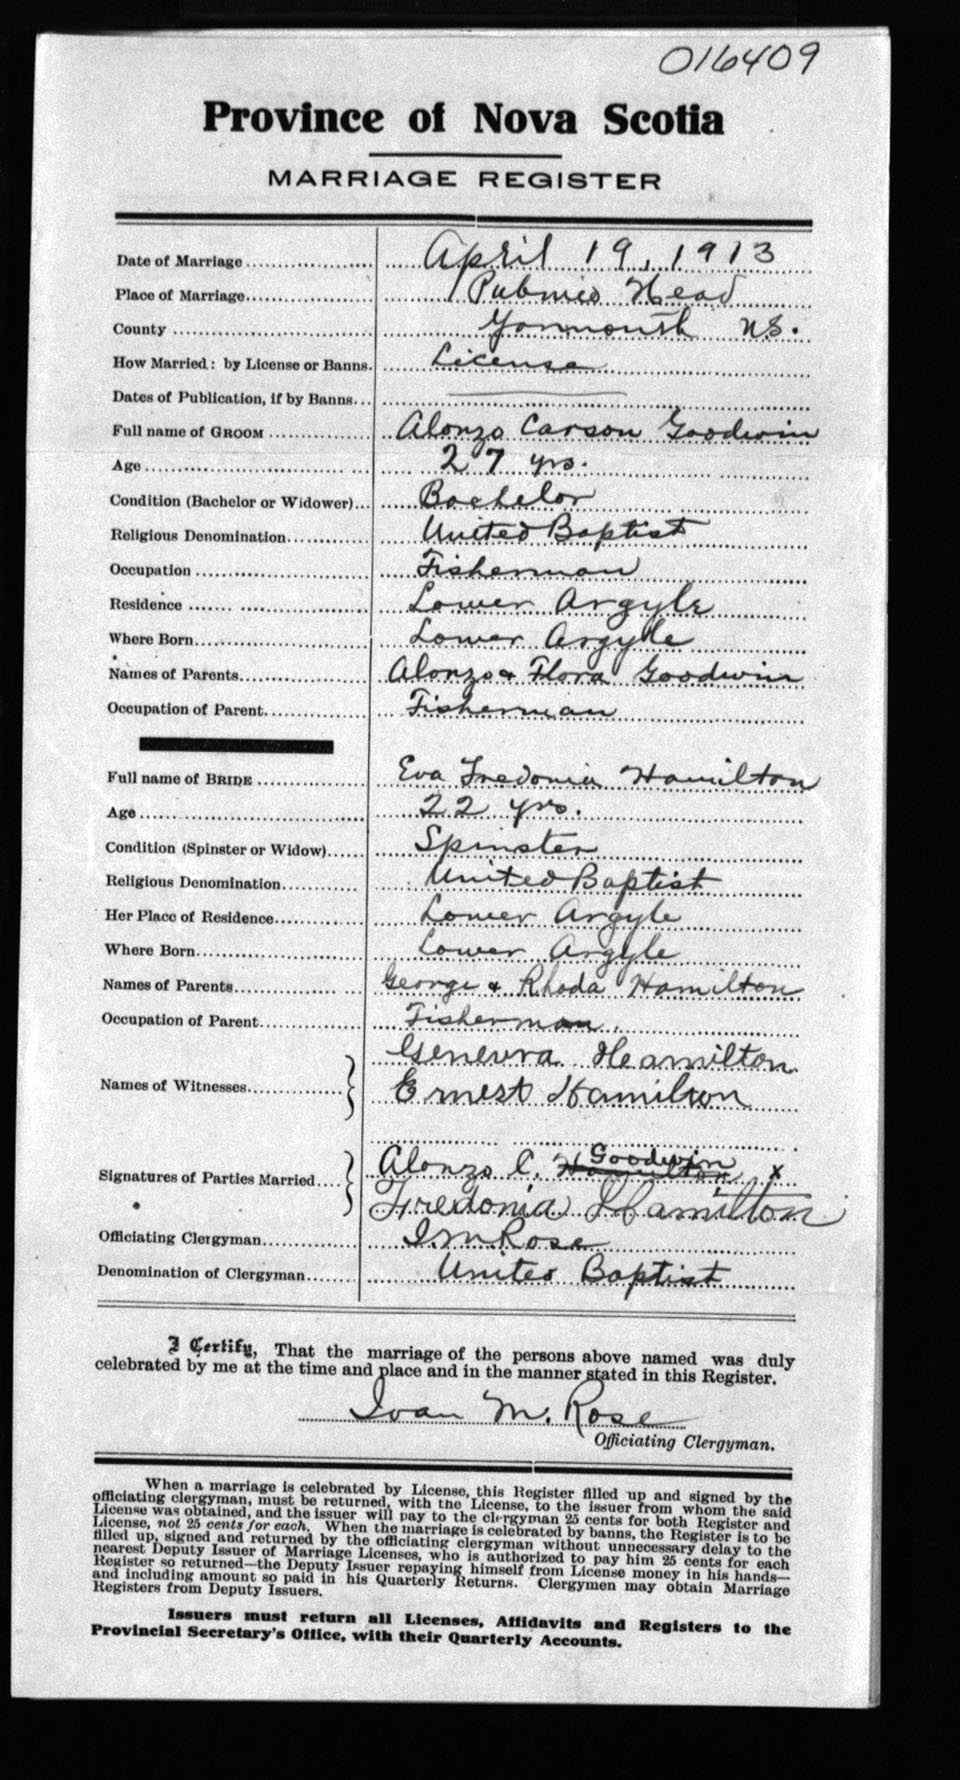 016409
Province of Nova Scotia
MARRIAGE REGISTER
Date of Marriage April 19, 1913
Place of Marriage Pubnico Head
County Yarmouth N.S.
How Married: by License or Banns. License
Dates of Publication, if by Banns
Full name of GROOM Alonzo Carson Goodwin
Age 27 yrs.
Condition (Bachelor or Widower) Bachelor
Religious Denomination United Baptist
Occupation Fisherman
Residence Lower Argyle
Where Born Lower Argyle
Names of Parents Alonzo & Flora Goodwin
Occupation of Parent Fisherman
Full name of BRIDE Eva Fredonia Hamilton
Age 22 yrs.
Condition (Spinster or Widow) Spinster
Religious Denomination United Baptist
Her Place of Residence Lower Argyle
Where Born Lower Argyle
Names of Parents George & Rhoda Hamilton
Occupation of Parent Fisherman
Genevra Hamilton
Names of Witnesses Ernest Hamilton
Goodwin
Alonzo C. Hamilton x
Signatures of Parties Married
Fredonia Hamilton
Officiating Clergyman I.M Rose
Denomination of Clergyman United Baptist
I Certify, That the marriage of the persons above named was duly
celebrated by me at the time and place and in the manner stated in this Register.
Ivan M. Rose
Officiating Clergyman.
When a marriage is celebrated by License, this Register filled up and signed by the
officiating clergyman, must be returned, with the License, to the issuer from whom the said
License was obtained, and the issuer will pay to the clergyman 25 cents for both Register and
License, not 25 cents for each. When the marriage is celebrated by banns, the Register is to be
filled up, signed and returned by the officiating clergyman without unnecessary delay to the
nearest Deputy Issuer of Marriage Licenses, who is authorized to pay him 25 cents for each
Register so returned—the Deputy Issuer repaying himself from License money in his hands—
and including amount so paid in his Quarterly Returns. Clergymen may obtain Marriage
Registers from Deputy Issuers.
Issuers must return all Licenses, Affidavits and Registers to the
Provincial Secretary's Office, with their Quarterly Accounts.